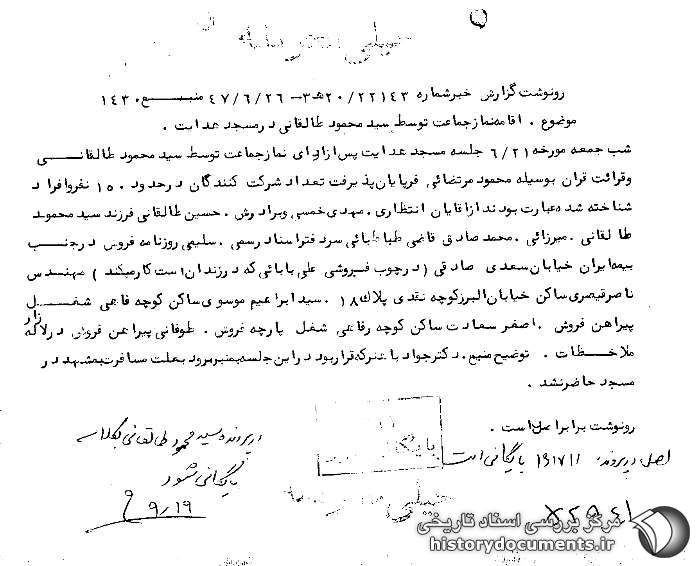 خیلی محرمانه
رونوشت گزارش خبر شماره ۲۰/۲۲۱۴۳ ه‍ ۳ـ ۴۷/۶/۲۶ منبع ۱۴۳۰
موضوع . اقامه نماز جماعت توسط سید محمود طالقانی در مسجد هدایت .
شب جمعه مورخه ۶/۲۱ جلسه مسجد هدایت پس از ادای نماز جماعت توسط سید محمود طالقانی
وقرائت قران بوسیله محمود مرتضائی فر پایان پذیرفت تعداد شرکت کنندگان در حدود ۱۵۰ نفر و افراد
شناخته شده عبارت بودند از آقایان انتظاری . مهدی خمسی و برادرش . حسین طالقانی فرزند سید محمود
طالقانی . میرزائی . محمد صادق قاضی طباطبائی سر دفتر اسناد رسمی . سلیمی روزنامه فروش در جنب
بیمه ایران خیابان سعدی صادقی ( در چوب فروشی علی بابائی که در زندان است کار میکند ) مهندس
ناصر قیصری ساکن خیابان البرز کوچه نقدی پلاک ۱۸ . سید ابراهیم موسوی ساکن کوچه شغل
پیراهن فروش . اصغر سعادت ساکن کوچه رفاهی شغل پارچه فروش . طوفانی پیراهن فروش در لاله زار
ملاحظات . توضیح منبع . دکتر جواد باهنر که قرار بود در این جلسه بمنبر برود بعلت مسافرت بمشهد در
مسجد حاضر نشد .
رونوشت برابر اصل است .
اصل در پرونده ۱۹۱۷۱۱ بایگانی است
در پرونده سید محمود طالقانی بکلاسه
بایگانی شود
۹/۱۹
خیلی محرمانه
مرکز بررسی اسناد تاریخی
historydocuments.ir